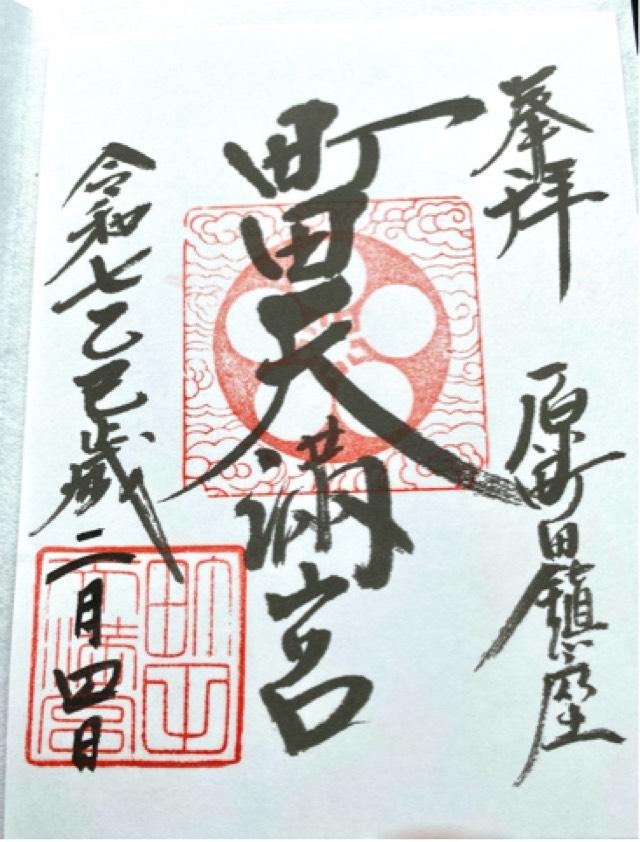 奉拝
原町田鎮座
町田天満宮
令和七乙巳歳二月四日
町田天満宮